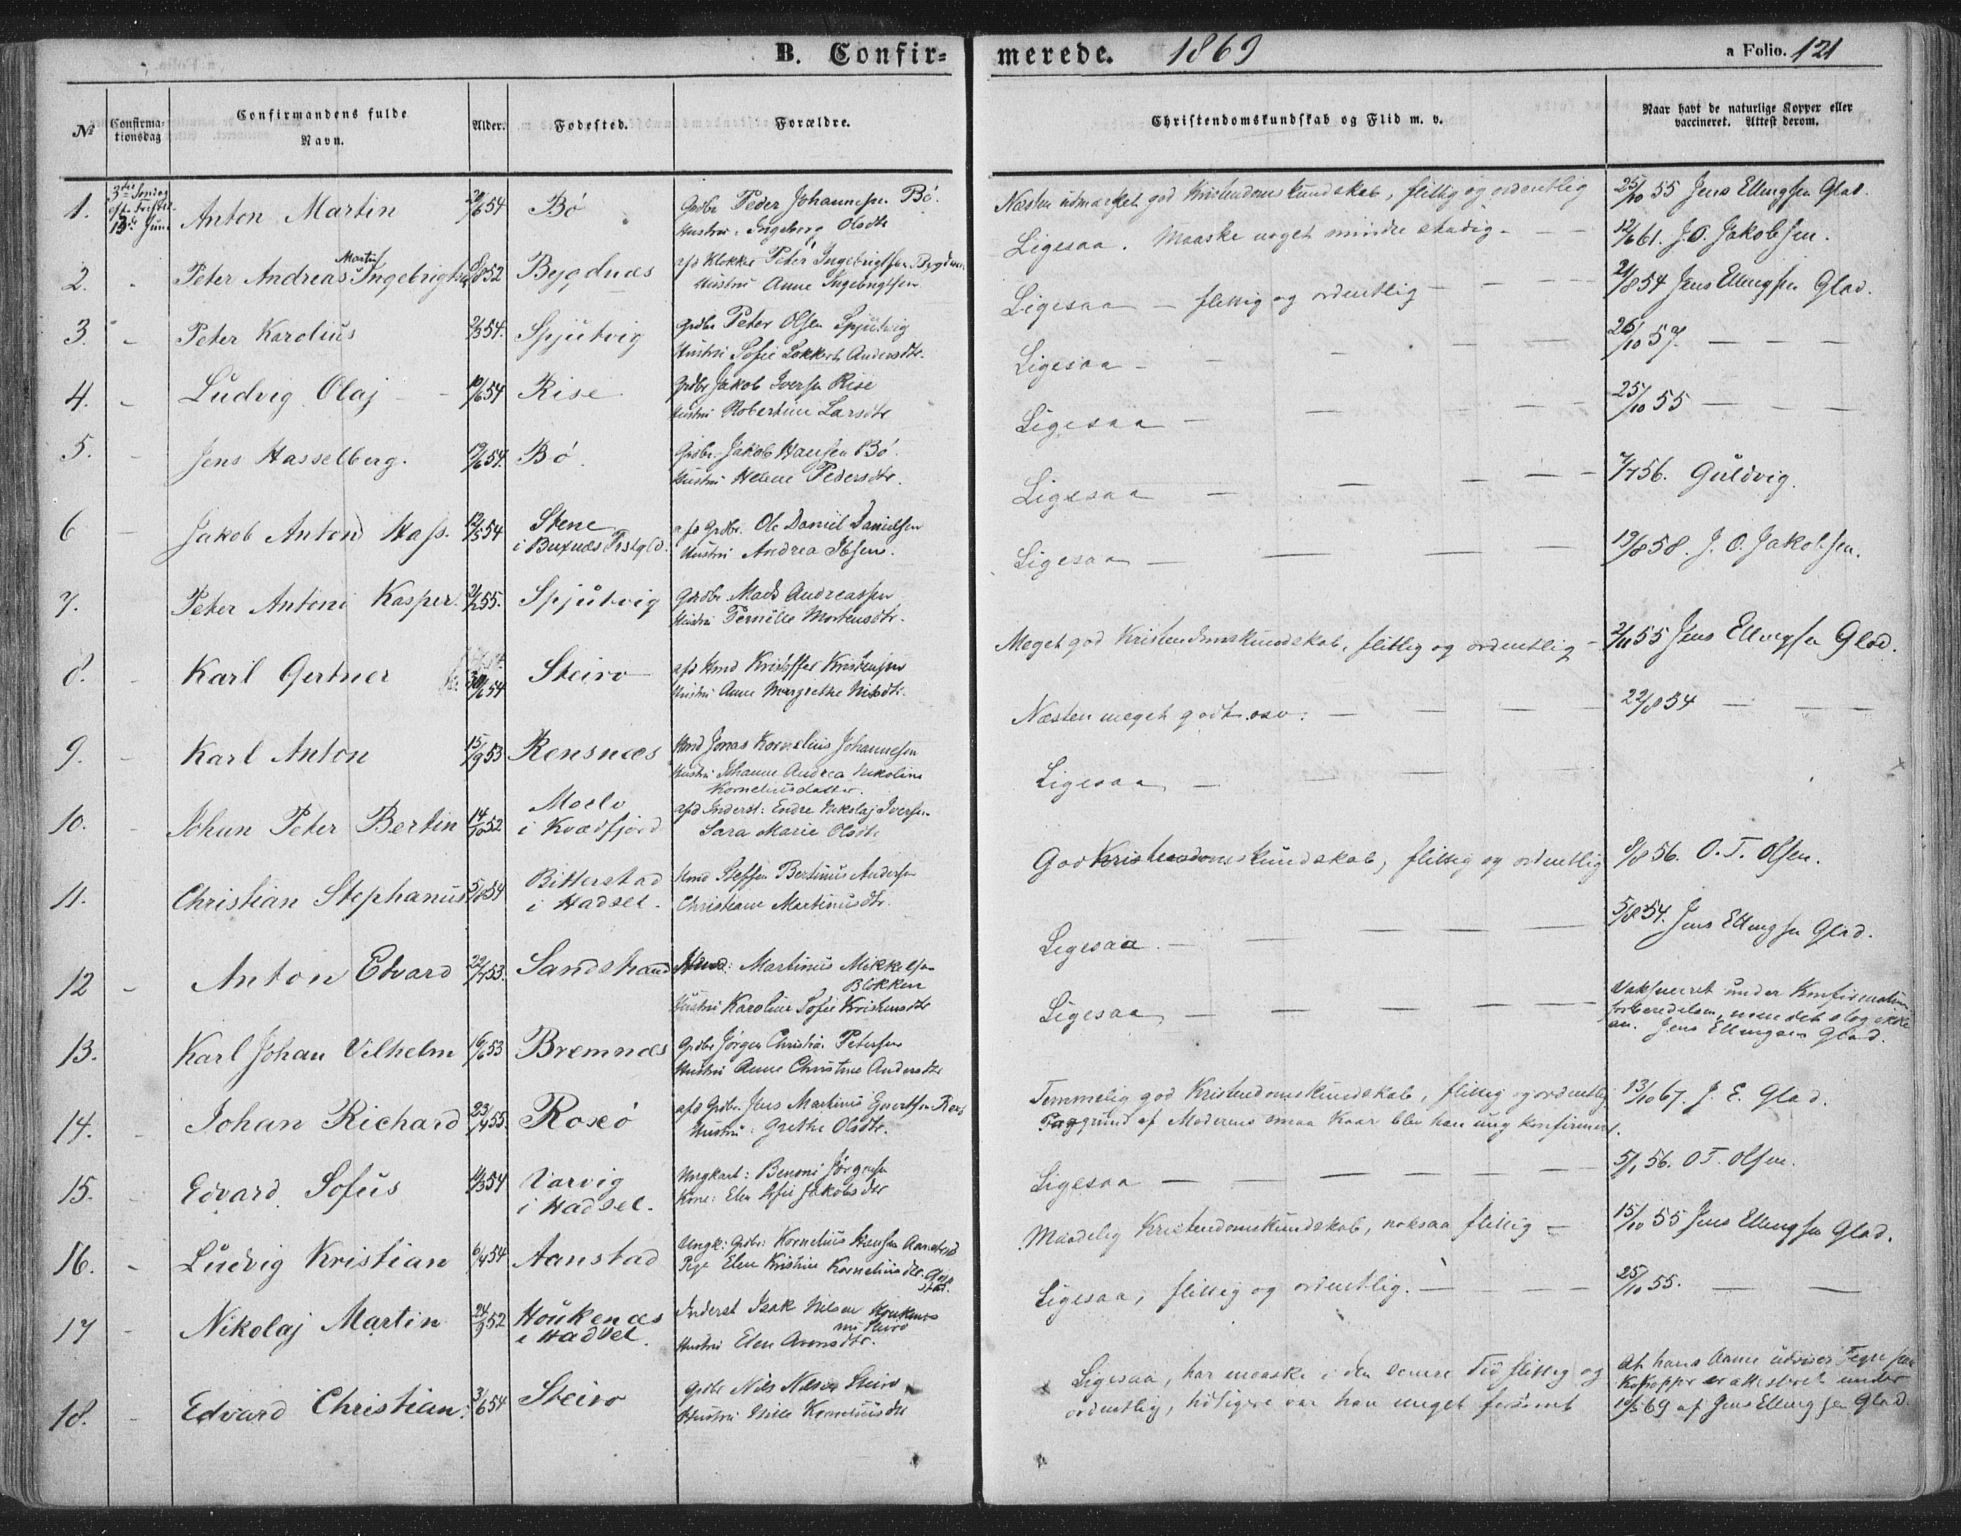 B. Confirmerede. 1869 a Folio. 121
№ Confirmationsdag Confirmandens fulde Navn. Alder. Fødested. Forældre. Christendomskundskab og Flid m. v. Naar havt de naturlige Kopper eller vaccineret. Attest derom.
1. 3die Søndag eft. Trefst. 13de Juni Anton Martin 54 Bö Grdbr Peder Johannesen Bö.
Hustru: Ingeborg Olsdtr
Næsten udmærket god Kristendomskundskab, flittig og ordentlig 25/10 55 Jens Ellingsen Glad.
2. Peter Andreas Martin Ingebrigtsen 52 Bygdnæs afd Klokker Peter Ingebrigtsen Bygdnæs
Hustru Anne Ingebrigtsen
Ligesaa. Maaske noget mindre stadig 12/6 61. J. O. Jakobsen.
3. Peter Karolius 54. Spjutvig Grdbr Peter Olsen Spjutvig
Hustru Sofie Andersdtr.
Ligesaa – flittig og ordentlig 21/8 54 Jens Ellingsen Glad.
4. Ludvig Olaj 10/6 54 Rise Grdbr Jakob Iversen Rise
Hustru Robertine Larsdtr
Ligesaa – 26/10 57. – – –
5. Jens Hasselberg. 54. Bö. Grdbr. Jakob Hansen Bö.
Hustru Helene Pedersdtr.
Ligesaa – 25/10 55 – – –
6 Jakob Anton Hass. 12/5 54 Stene
i Buxnæs Prstgld. afd Grdbr. Ole Daniel Danielsen
Hustru Andrea Ibsen.
Ligesaa – 7/7 56. Guldvig.
7. Peter Antoni Kasper. 55. Spjutvig Grdbr Mads Andreassen
Hustru Pernille Mortensdtr.
Ligesaa – 19/8 58. J. O. Jakobsen.
8. Karl Gertner 30/6 54 Steiro afd Hmd Kristoffer Kristensen
Hustru Anne Margrethe Nilsdtr.
Meget god Kristendomskundskab, flittig og ordentlig – 2/11 55 Jens Ellingsen Glad.
9. Karl Anton 15/9 53 Rensnæs Hmd Jonas Kornelius Johannesen
Hustru Johanne Andrea Nikoline
Korneliusdatter.
Næsten meget godt osv. – 22/8 54 – – –
10. Johan Peter Bertin 14/10 52 Moelv
i Kvædfjord afd Inderst: Endre Nikolaj Iversen
Sara Marie Olsdtr
Ligesaa –
11. Christian Stephanus 5/8 54 Bitterstad
i Hadsel. Hmd Steffen Bertinus Andersen
Christiane Martinusdtr.
God Kristendomskundskab, flittig og ordentlig 8/8 56. O. T. Olsen.
12 Anton Edvard 22/7 53. Sandstrand Hmd: Martinus Mikkelsen
Blokken
Hustru Karoline Sofie Kristensdtr
Ligesaa. – 5/8 54. Jens Ellingsen Glad.
13. Karl Johan Vilhelm 16/6 53 Bremnæs Grdbr Jørgen Christian Petersen
Hustru Anne Christine Andersdtr
Ligesaa – Vaksineret under Konfirmations
forberedelsen, men det slog ikke
an. Jens Ellingsen Glad.
14. Johan Richard 23/4 55. Roksö afd Grdbr. Jens Martinus Evertsen
Hustru: Grethe Olsdtr.
Temmelig god Kristendomskundskab, flittig og ordentlig 13/10 67. J. E. Glad.
Paa grund af Moderens smaa Kaar blev han ung konfirmert.
15. Edvard Sofus 54 Varvig
i Hadsel. Ungkarl: Benoni Jørgensen
Kone: Elen Sofie Jakobsdtr
Ligesaa – 5/1 56. O T. Olsen.
16. Ludvig Kristian 6/4 54 Aanstad Ungk: Grdbr: Kornelius Hansen Aanstad
Pige Elen Kristine Korneliusdtr.
Maadelig Kristendomskundskab, noksaa flittig – 15/10 55 Jens Ellingsen Glad.
17 Nikolaj Martin 24/9 52 Houkenæs
i Hadsel. Inderst Isak Nilsen Houkenæs
nu Steiro
Hustru Elen Arensdtr.
Ligesaa, flittig og ordentlig. – 25/10 55. –
18. Edvard Christian. 3/6 54 Steiro Grdbr Nils Nilsen Steiro
Hustru Korneliusdtr
Ligesaa, har maaske i den senere Tid flittig og
ordentlig, tidligere var han meget forsømt
At hans Arme udviser Tegn paa
Kokopper er attesteret under
69 af Jens Ellingsen Glad.